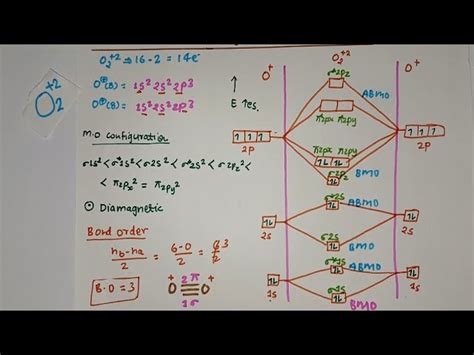 O₂⁺² ⇒ 16-2 = 14e⁻
O⁺(8) = 1s² 2s² 2p3
O⁺(8) = 1s² 2s² 2p3
O₂⁺²
M.O configuration
σ1s² < σ*1s² < σ2s² < σ*2s² < σ2pz²
< π2px² = π2py²
Diamagnetic
Bond order
nb-na/2 = 6-0/2 = 6/2 3
B.O = 3
2π
O⁺≡O⁺
1σ
E ↑es.
O⁺ O₂⁺² O⁺
σ*2pz
ABMO
π*2px π*2py
2P 2P
π2px π2py
σ2pz
BMO
σ*2s
ABMO
2s 2s
σ2s
BMO
σ*1s
ABMO
1s 1s
σ1s
BMO